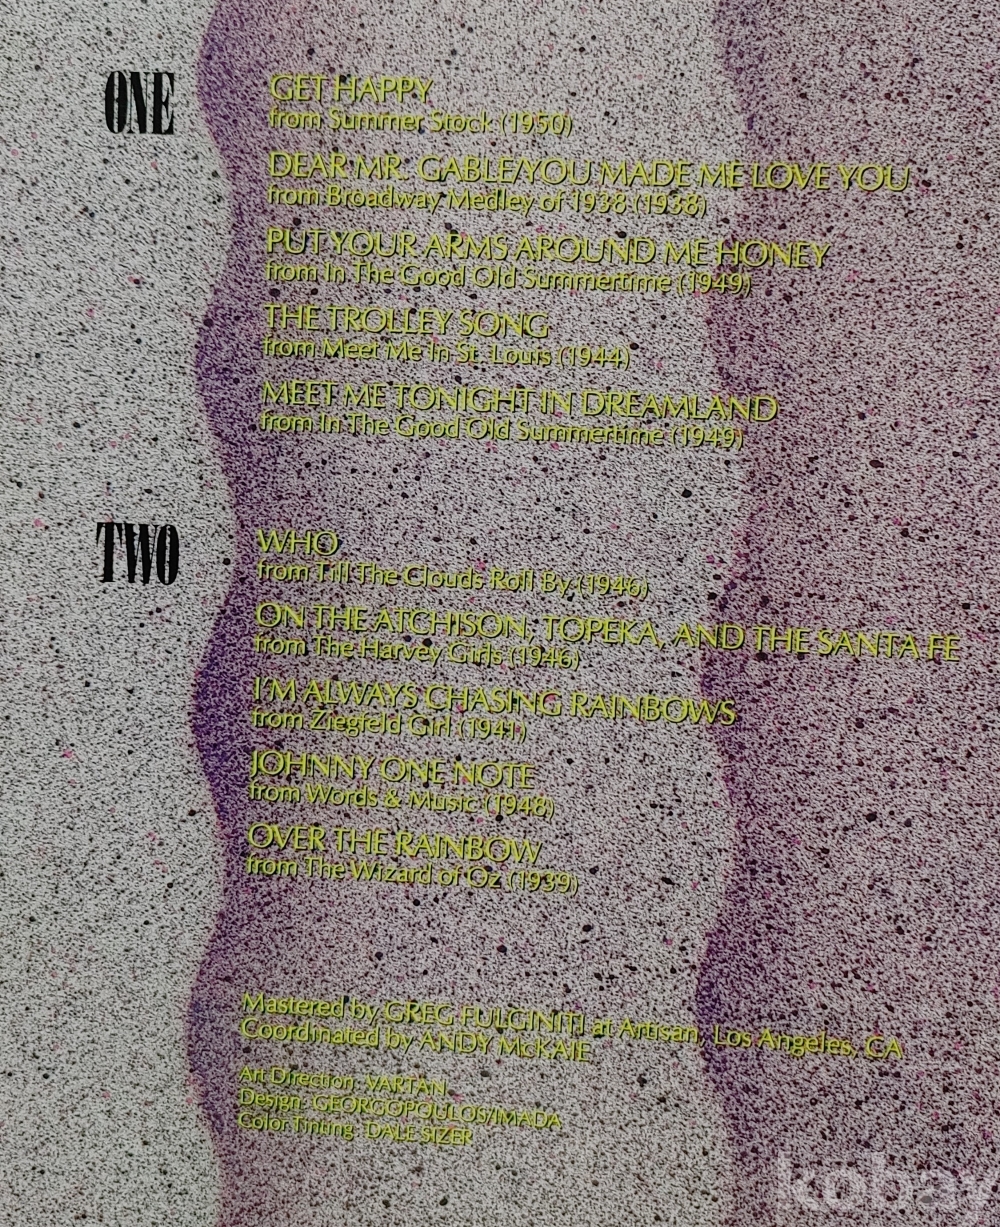 ONE
GET HAPPY
from Summer Stock (1950)
DEAR MR. GABLE/YOU MADE ME LOVE YOU
from Broadway Medley of 1938 (1938)
PUT YOUR ARMS AROUND ME HONEY
from In The Good Old Summertime (1949)
THE TROLLEY SONG
from Meet Me In St. Louis (1944)
MEET ME TONIGHT IN DREAMLAND
from In The Good Old Summertime (1949)
TWO
WHO
from Till The Clouds Roll By (1946)
ON THE ATCHISON, TOPEKA, AND THE SANTA FE
from The Harvey Girls (1946)
I'M ALWAYS CHASING RAINBOWS
from Ziegfeld Girl (1941)
JOHNNY ONE NOTE
from Words & Music (1948)
OVER THE RAINBOW
from The Wizard of Oz (1939)
Mastered by GREG FULGINITI at Artisan, Los Angeles, CA
Coordinated by ANDY McKAIE
Art Direction: VARTAN
Design: GEORGOPOULOS/IMADA
Color Tinting: DALE SIZER
kobay